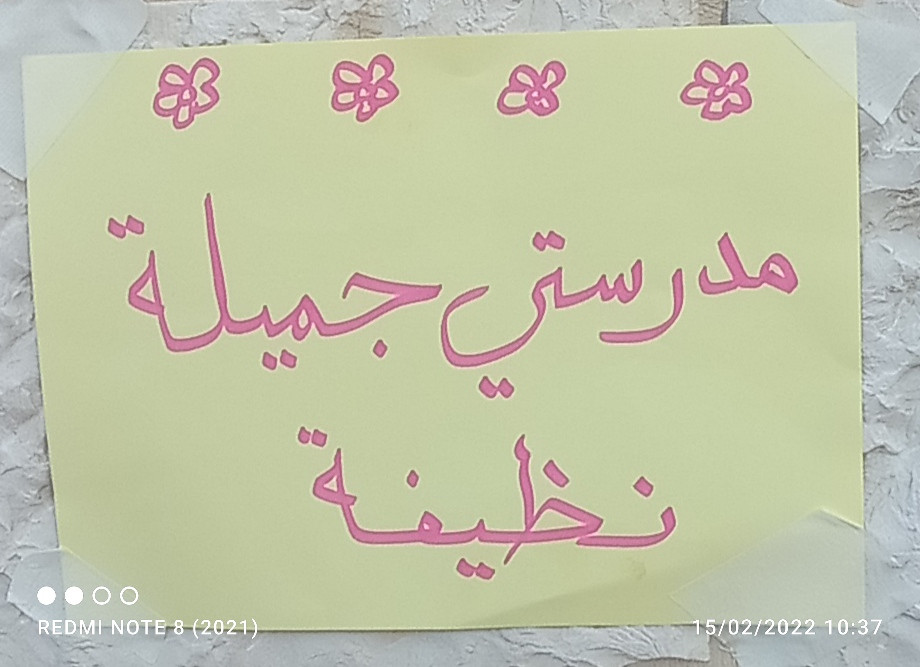 مدرستي جميلة
نظيفة
REDMI NOTE 8 (2021)
15/02/2022 10:37